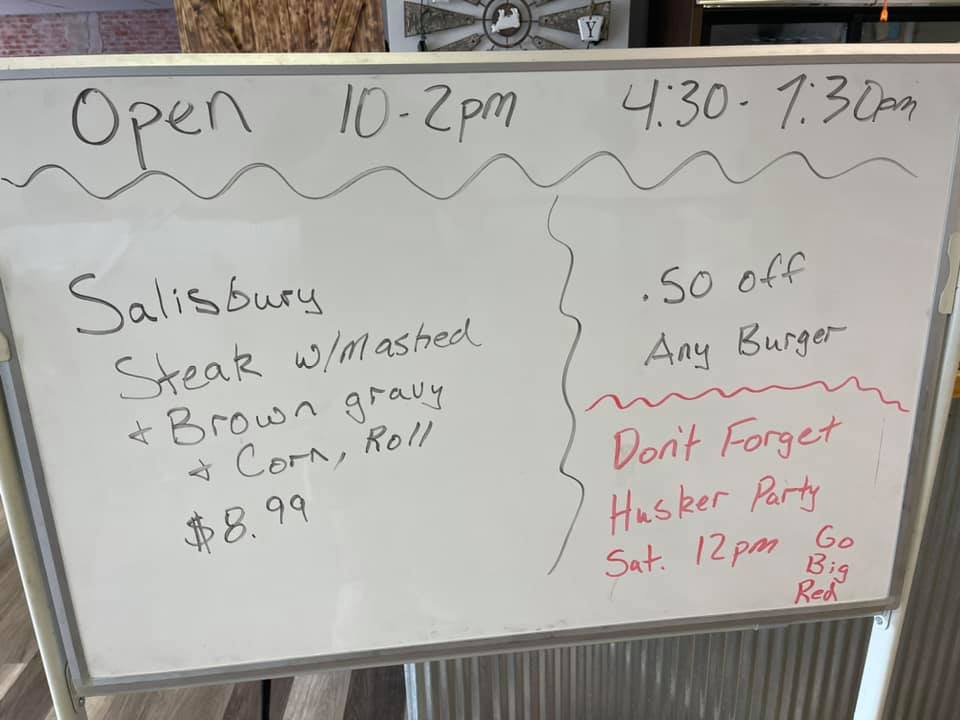 Open 10-2pm 4:30-7:30pm
Salisbury
Steak w/mashed
& Brown gravy
& Corn, Roll
$8.99
.50 off
Any Burger
Don't Forget
Husker Party
Sat. 12pm Go
Big
Red
Y